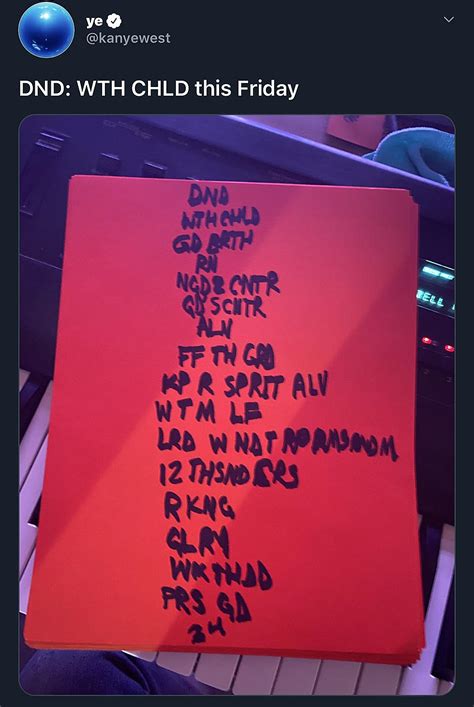 ye
@kanyewest
DND: WTH CHLD this Friday
DND
WTH CHLD
GD BRTH
RN
NGD & CNTR
GD S CNTR
ALN
FF TH GRD
KP R SPRIT ALV
WTM LF
LRD W NDT
12 THSND
RKNG
GLRY
WK TH DD
PRS GD
24
ELL